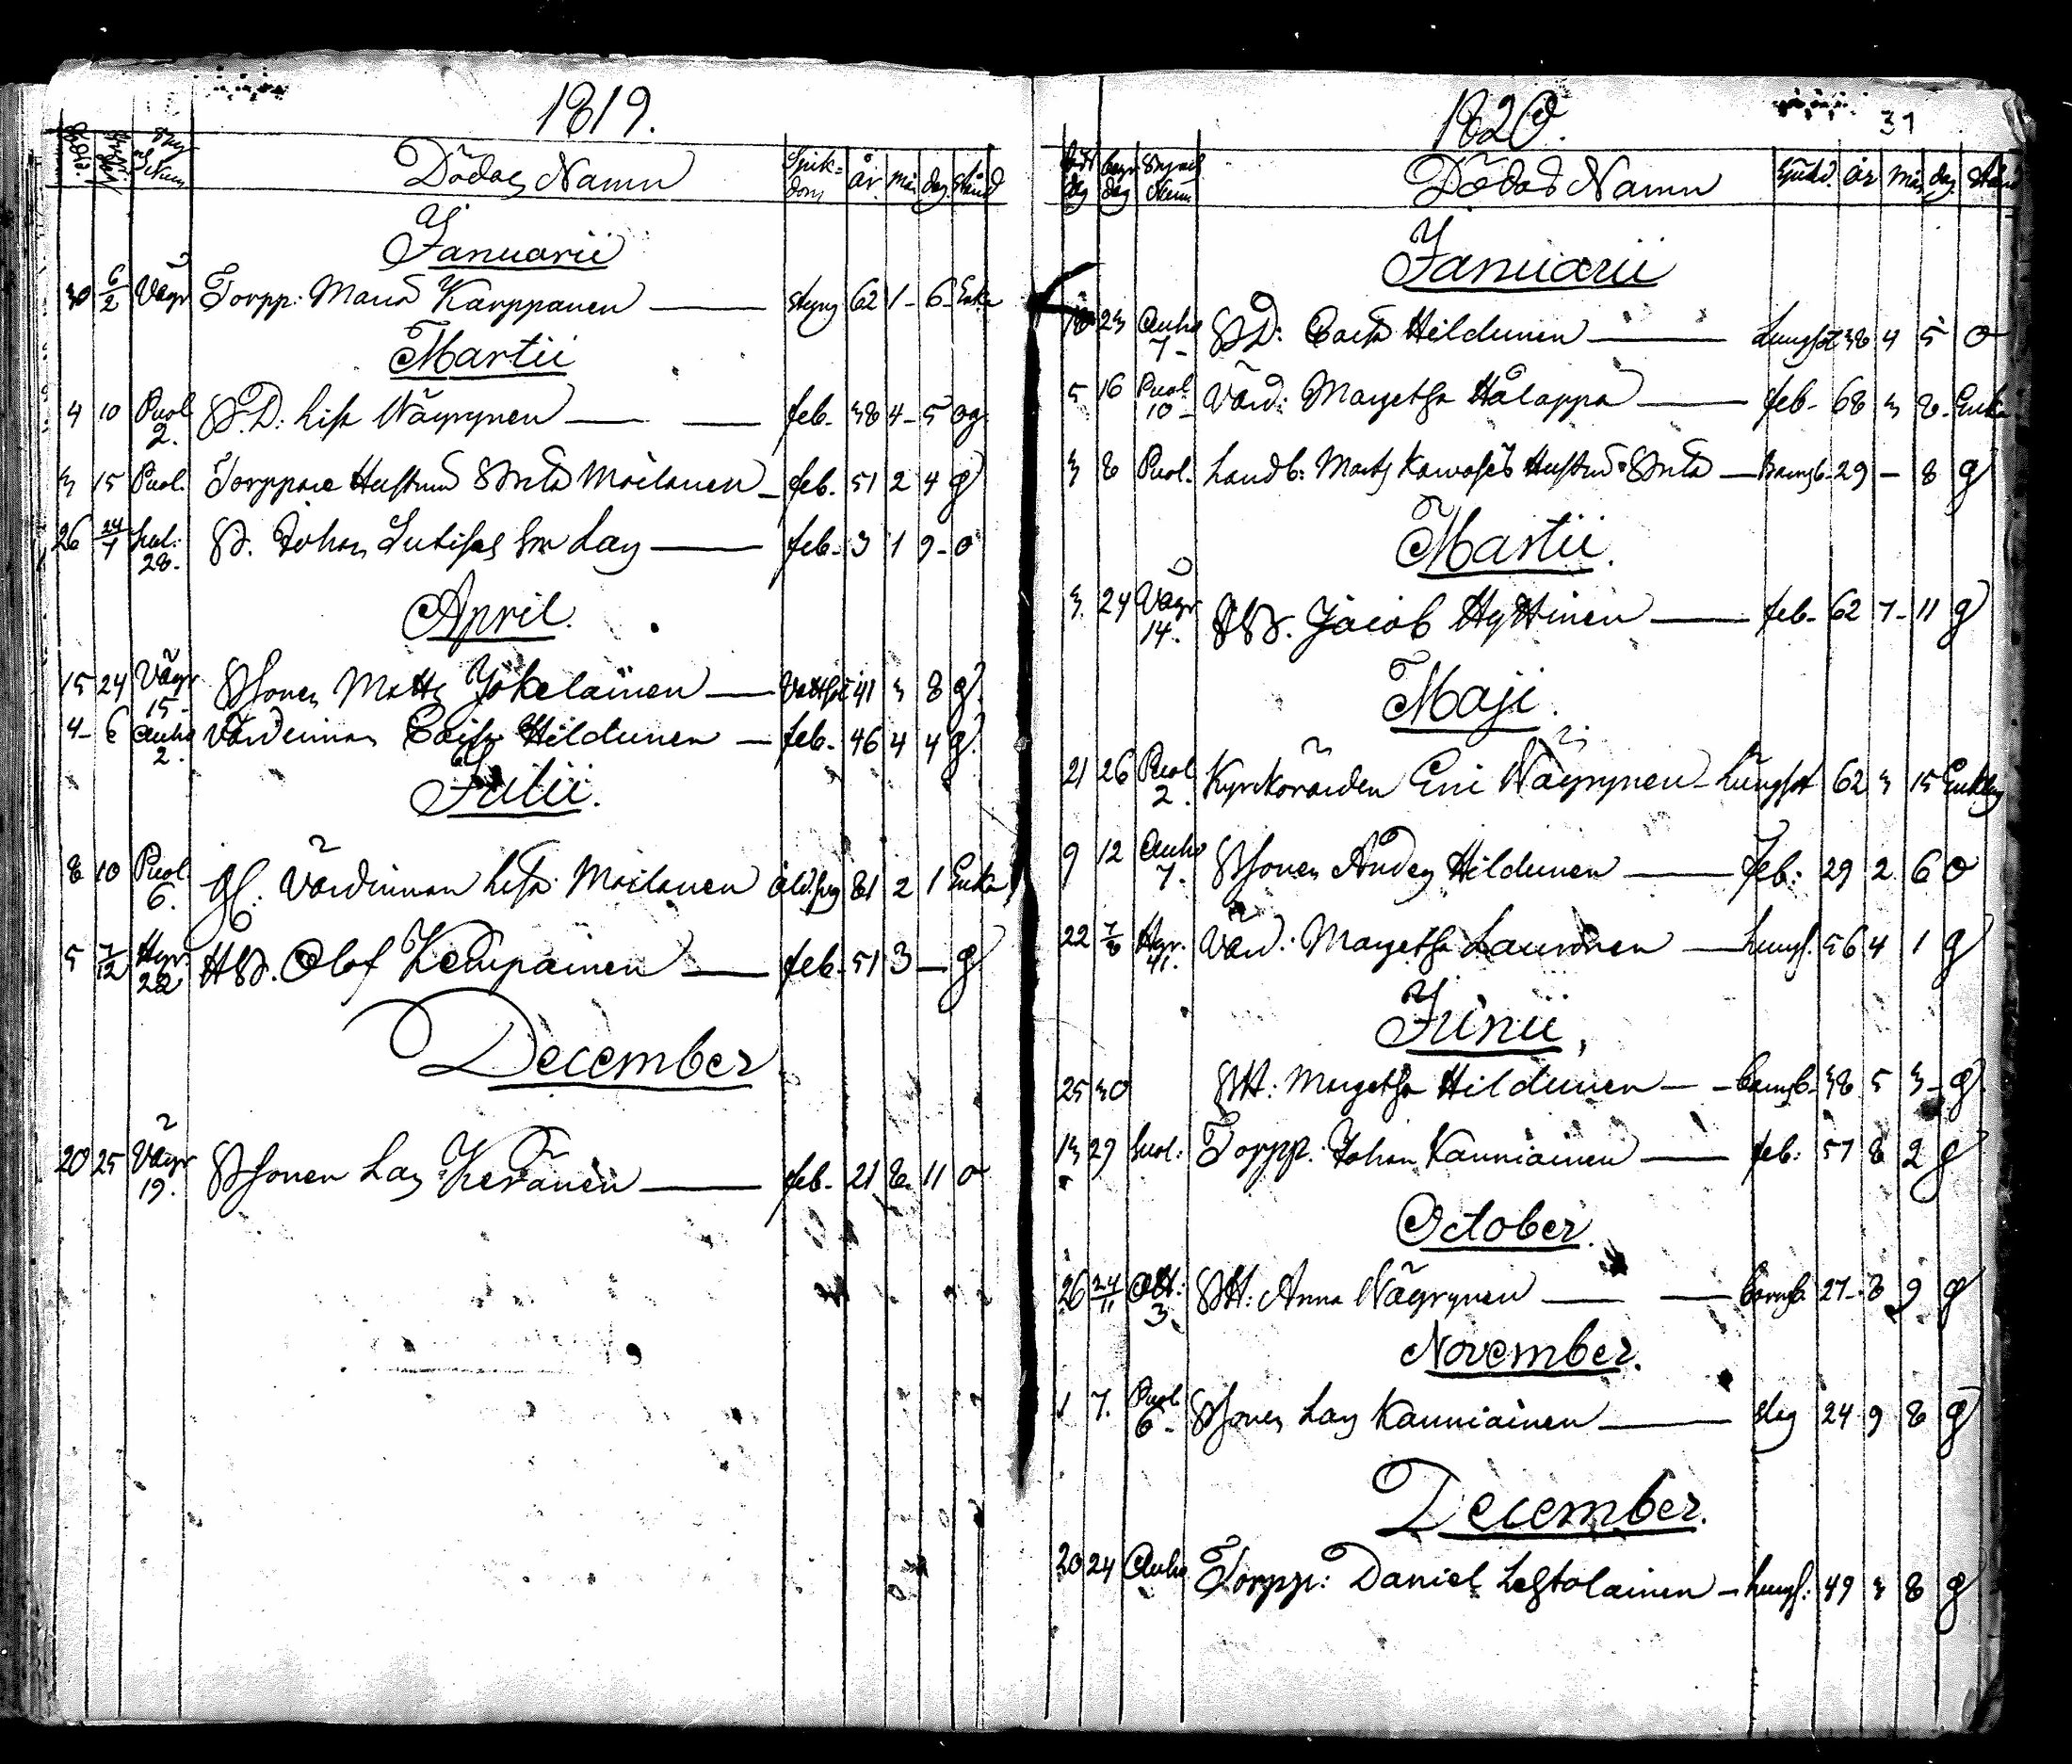 1819.
Dödas Namn Sjuk-dom år mån dag stånd
Januarii
30 6/2 Vägr Torpp: Maria Karppanen — styng 62 1 - 6 - Enka
Martii
4 10 Puol. 2. B.D: Lisa Näyrynen — feb. 38 4 - 5 og.
3 15 Puol. Torppare Hustrun Brita Moilanen — feb. 51 2 4 g
26 24/7 28. B. Johan son Lars — feb. 3 1 9 - o
April.
15 24 Vägr 15. Matts Jokelainen — 41 3 8 g.
4 - 6 Auho 2. Värdinnan Caisa Hildunen — feb. 46 4 4 g.
Julii.
8 10 Puol. 6. Gl: Värdinnan Lisa Moilanen 81 2 1 Enka
5 7/12 Hyr. 22 HB. Olof Kemppainen — feb. 51 3 — g
December
20 25 Vägr 19. Bonen Lars Keränen — feb. 21 8. 11 o
1820.
31
Dödas Namn Sjukd. år mån dag stånd
Januarii
18 23 Auho 7 - BD: Caisa Hildunen — Lungsot 38 4 5 o
5 16 Puol. 10 - Värd: Margetha Hålappa — feb - 68 3 8 - Enka
3 8 Puol. Landb: Matts Hustru Brita — Barnsb. 29 — 8 g
Martii.
3. 24 Vägr 14. Jacob Hyttinen — feb - 62 7 - 11 g
Maji.
21 26 Puol. 2. Kyrkovärden Eric Näyrynen - Lungsot 62 3 15 Enkling
9 12 Auho 7. Bonen Anders Hildunen — feb: 29 2 6 o
22 7/6 Hyr. 41. Värd.: Margetha Lauronen — Lungs. 56 4 1 g
Junii,
25 30 BH: Margetha Hildunen — Barnsb. 38 5 3 - g.
13 29 Torpp: Johan Kanniainen — feb: 57 8 2 g
October.
26 24/11 Ott: 3. BH: Anna Näyrynen — Barnsb. 27 - 8 9 g
November.
1 7. Puol. 6 - Bonen Lars Kanniainen — slag 24 9 8 g
December.
20 24 Auho Torpp: Daniel Lehtolainen — Lungs: 49 3 8 g